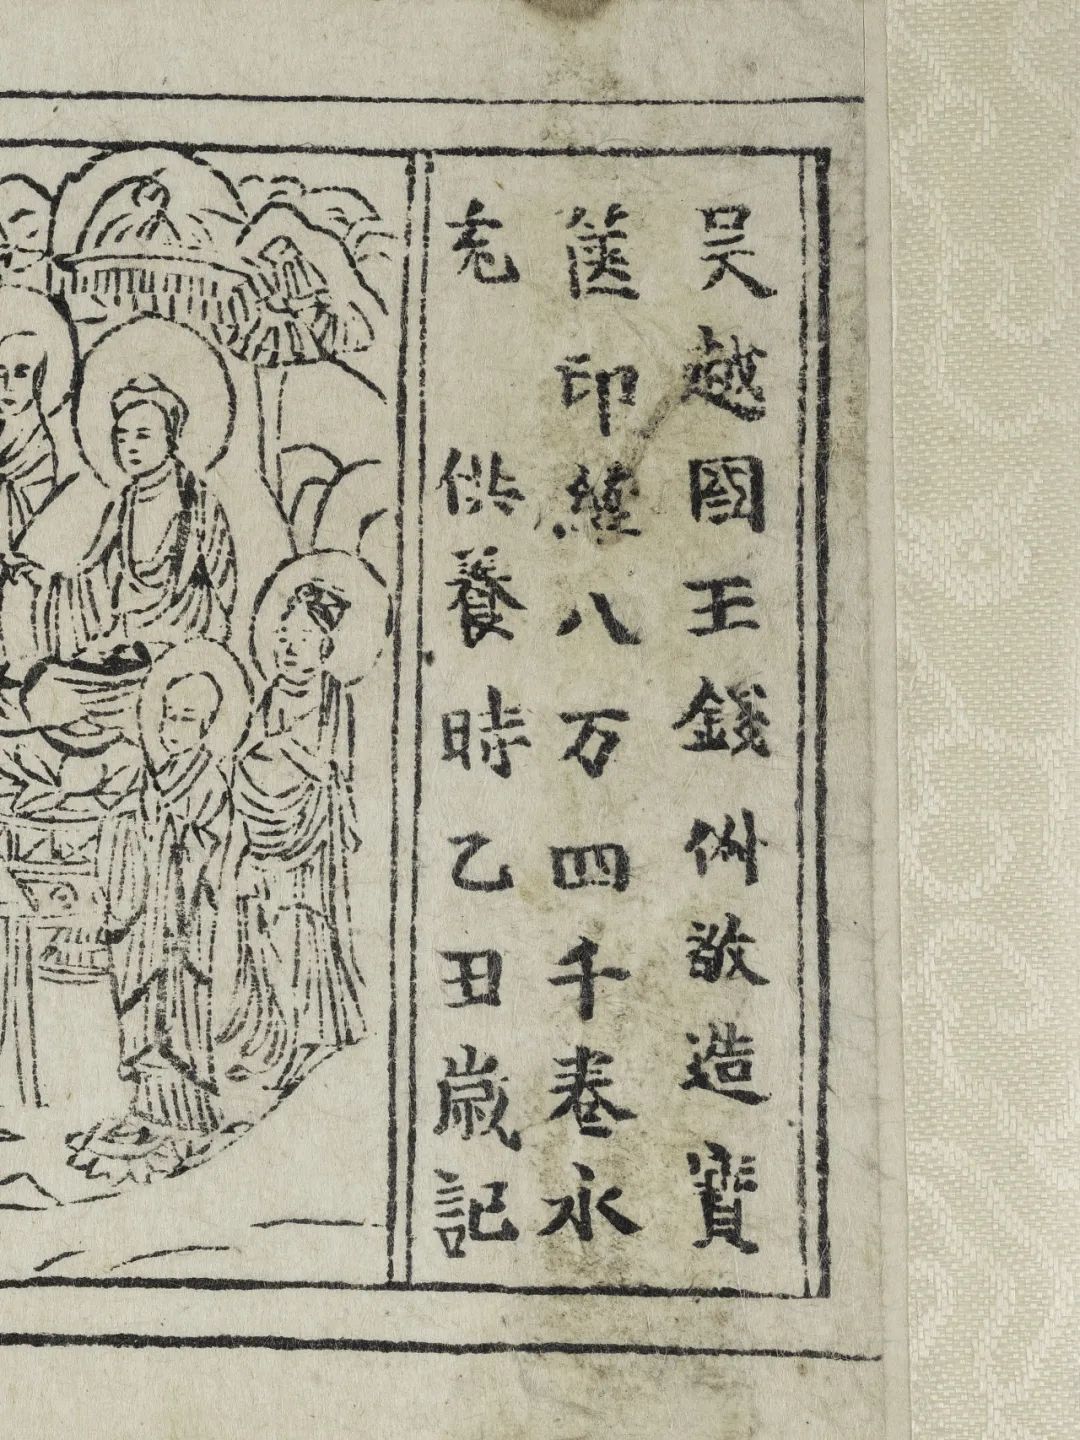 吴越國王錢俶敬造寳
篋印經八万四千卷永
充供養時乙丑歳記